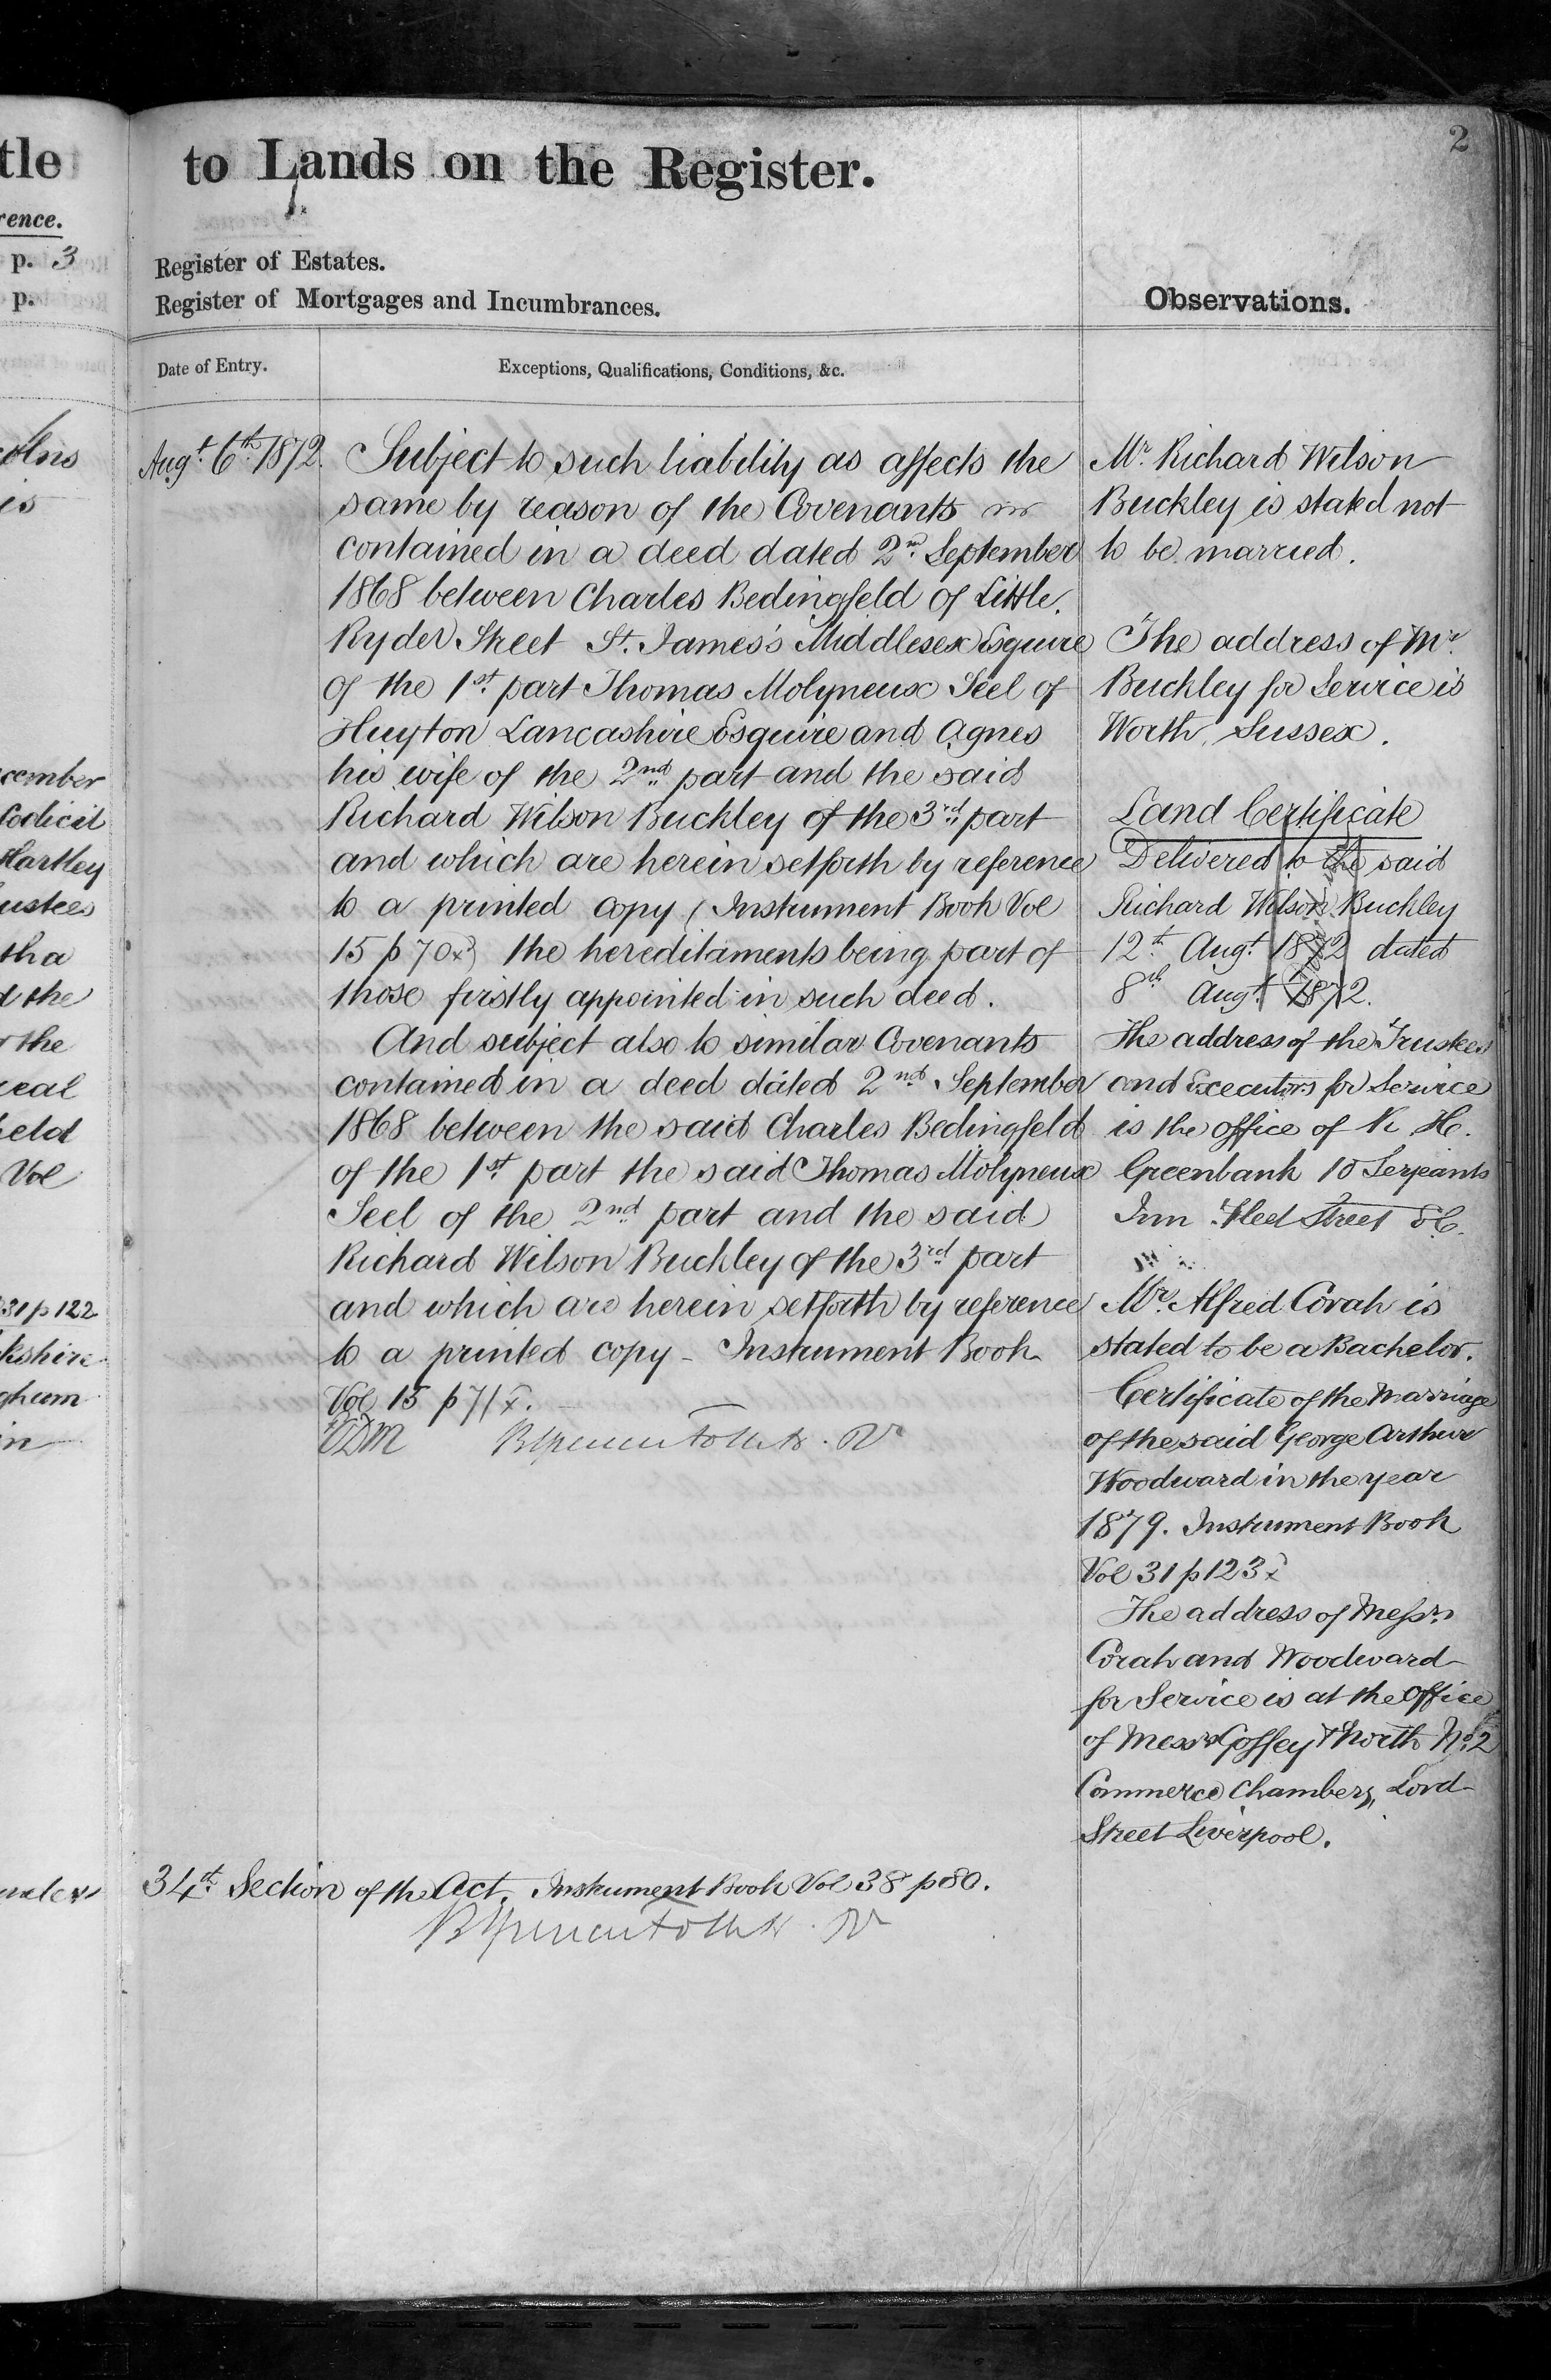 tle
rence.
p. 3
p.
is
cember
Codicil
Hartley
ustees
tha
d the
the
eal
Vol
31 p 122
kshire
gham
in
2
to Lands on the Register.
Register of Estates.
Register of Mortgages and Incumbrances.
Date of Entry.
Exceptions, Qualifications, Conditions, &c.
Augt. 6th. 1872.
Subject to such liability as affects the
same by reason of the Covenants
contained in a deed dated 2nd. September
1868 between Charles Bedingfeld of Little
Ryder Street St. James's Middlesex Esquire
of the 1st. part Thomas Molyneux Seel of
Huyton Lancashire Esquire and Agnes
his wife of the 2nd. part and the said
Richard Wilson Buckley of the 3rd. part
and which are herein setforth by reference
to a printed copy (Instrument Book Vol
15 p 70x) the hereditaments being part of
those firstly appointed in such deed.
And subject also to similar Covenants
contained in a deed dated 2nd. September
1868 between the said Charles Bedingfeld
of the 1st. part the said Thomas Molyneux
Seel of the 2nd. part and the said
Richard Wilson Buckley of the 3rd. part
and which are herein setforth by reference
to a printed copy - Instrument Book
Vol 15 p 71x.
34th. Section of the Act. Instrument Book Vol 38 p 80.
Observations.
Mr. Richard Wilson
Buckley is stated not
to be married.
The address of Mr.
Buckley for Service is
Worth, Sussex.
Land Certificate
Delivered to the said
Richard Wilson Buckley
12th. Augt. 1872 dated
8th Augt. 1872.
The address of the Trustees
and Executors for Service
is the office of K H.
Greenbank 10 Serjeants
Inn Fleet Street E.C.
Mr. Alfred Corah is
stated to be a Bachelor.
Certificate of the Marriage
of the said George Arthur
Woodward in the year
1879. Instrument Book
Vol 31 p 123x
The address of Messrs
Corah and Woodward
for Service is at the Office
of Messrs Goffey & North No. 2
Commerce Chambers, Lord
Street Liverpool.